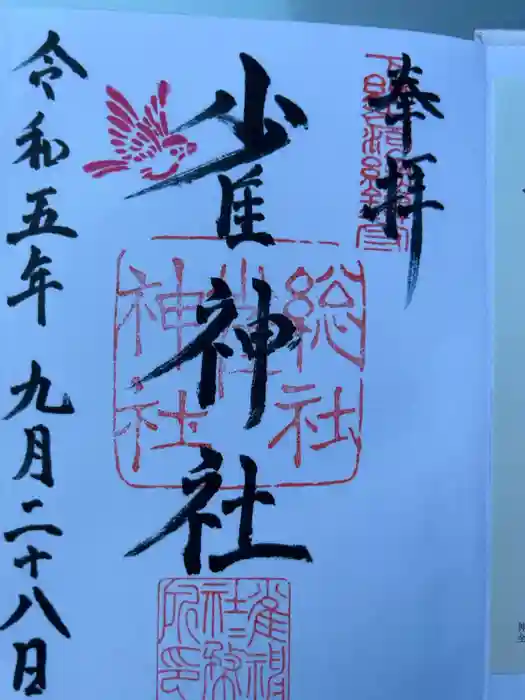 奉拝
雀神社
総社
雀
神社
令和五年 九月二十八日